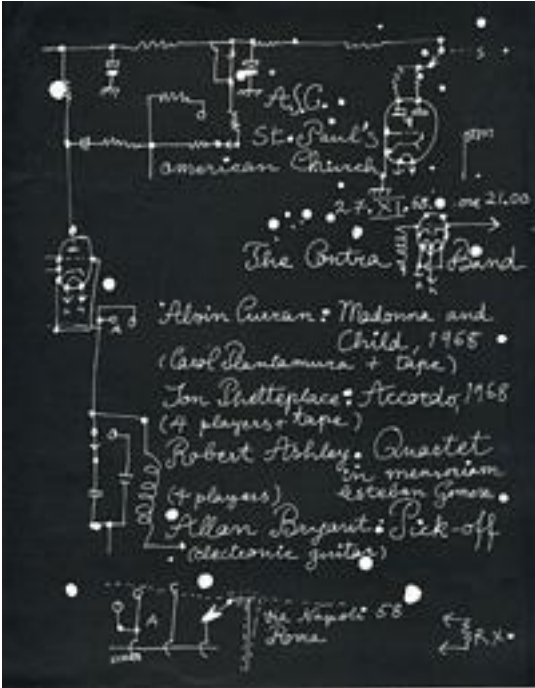 S
A.S.C.
St. Paul's
american Church
27. XI. 68. ore 21.00
The Contra Band
A
Alvin Curran: Madonna and
Child, 1968
(Carol Plantamura + tape)
Jon Phetteplace: Accordo, 1968
(4 players + tape)
Robert Ashley: Quartet
in memoriam
Esteban Gomez
(4 players)
Allan Bryant: Pick-off
(electronic guitar)
A
Via Napoli 58
Roma
RX